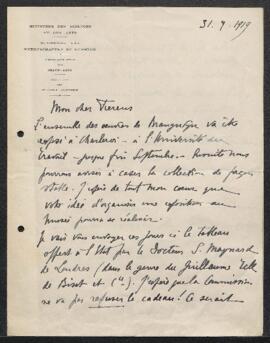 MINISTÈRE DES SCIENCES
ET DES ARTS
BEAUX-ARTS
31. 7 1919
Mon cher Fierens
L'ensemble des œuvres de va être
exposé à Charleroi - à l'Université du
travail - jusque fin Septembre. Ensuite nous
pourrons aviser à caser la collection de façon
stable. J'espère de tout mon cœur que
votre idée d'organiser une exposition au
Musée pourra se réaliser.
Je vais vous envoyer ces jours ci le tableau
offert à l'État par le Docteur S. Maynard
de Londres (dans le genre du Guillaume Tell
de et Cie). J'espère que la Commission
ne va pas refuser le cadeau! Ce serait